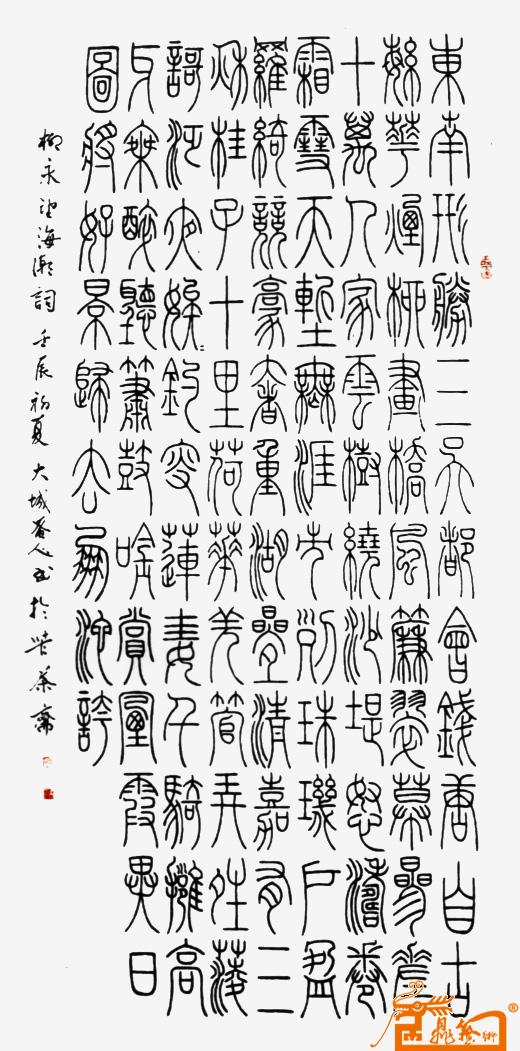 東南形勝三吳都會錢唐自古
緐華煙柳畫橋風簾翠幕參差
十萬人家雲樹繞沙堤怒濤卷
霜雪天塹無涯市列珠璣戶盈
羅綺競豪奢重湖疊清嘉有三
秌桂子十里荷華羌管弄晴菱
謌泛夜嬉〻釣叟蓮娃千騎擁高
牙乘醉聽簫鼓唫賞煙霞異日
圖將好景歸去鳳池誇
柳永望海潮詞 壬辰初夏 大城人书於苦茶齋